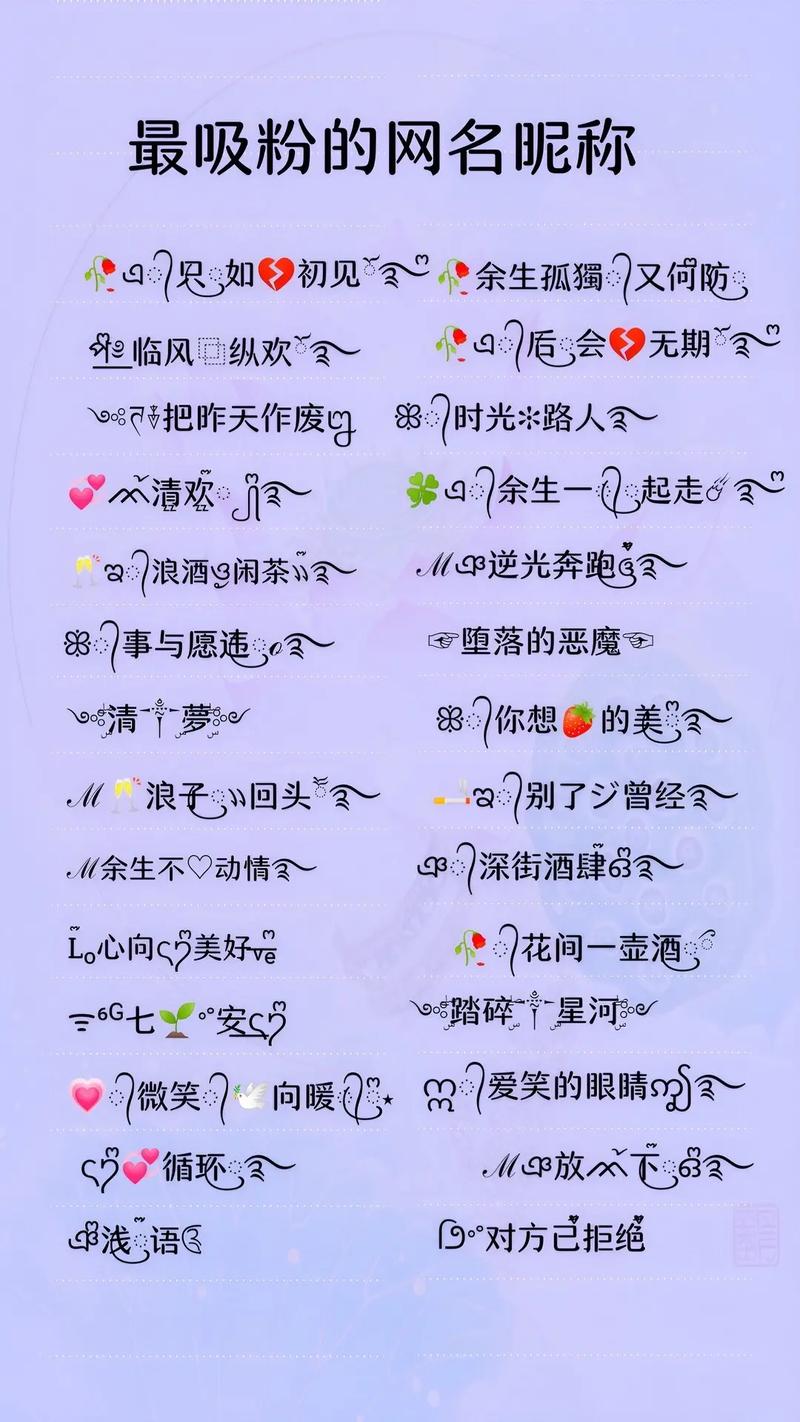 最吸粉的网名昵称
🥀只如💔初见
🥀余生孤獨又何防
临风纵欢
🥀后会💔无期
把昨天作废
时光✼路人
💕清欢
🍀余生一起走☄
🥂浪酒闲茶
ℳ逆光奔跑
事与愿违
☞堕落的恶魔☜
清夢
你想🍓的美
ℳ🥂浪子回头
🚬别了ジ曾经
ℳ余生不♡动情
深街酒肆
Lo心向美好ve
🥀花间一壶酒
⁶ᴳ七🌱安
踏碎星河
💗微笑🕊向暖⋆
爱笑的眼睛
💞循环
ℳ放下
浅语
对方己拒绝